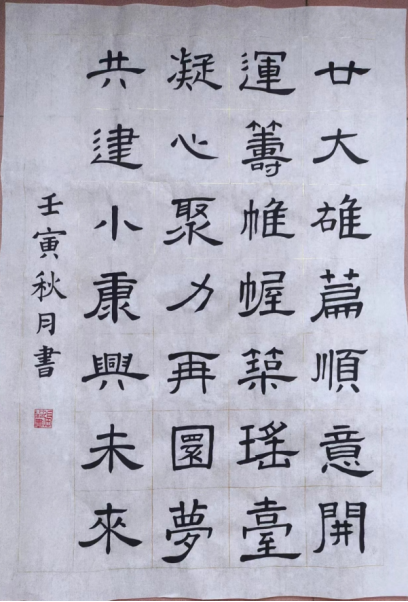 廿大雄篇順意開
運籌帷幄築瑤臺
凝心聚力再圓夢
共建小康興未來
壬寅秋月書